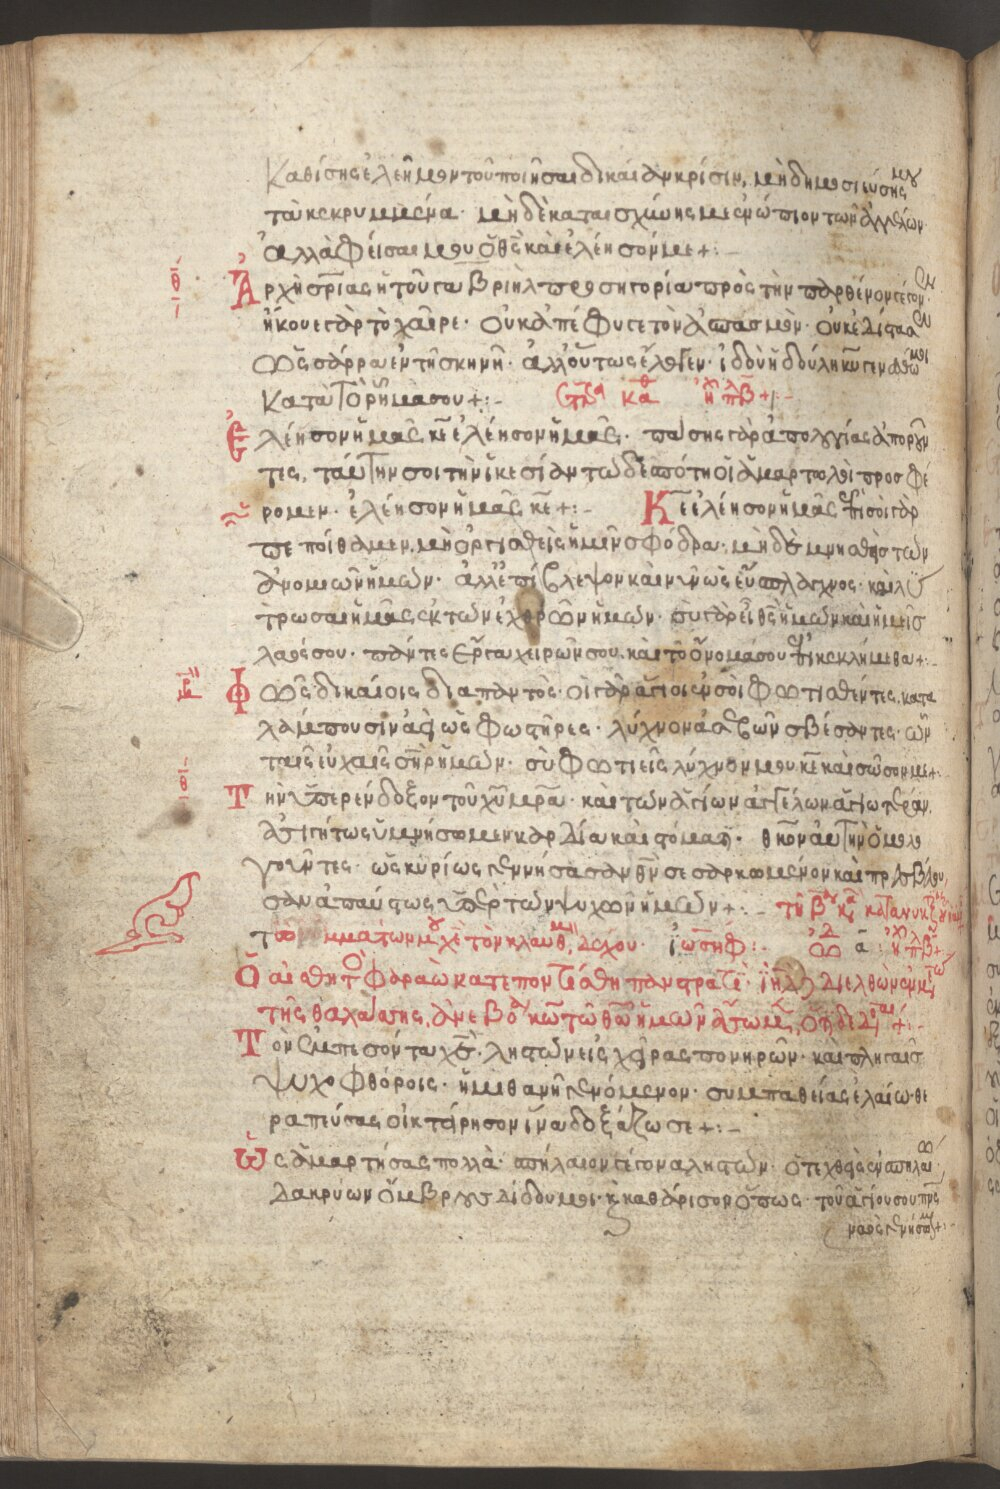 Καθίσης ἐλεῆμον τοῦ ποιῆσαι δικαίαν κρίσιν, μὴ δημοσιεύσης μου
τὰ κεκρυμμένα· μὴ δὲ καταισχύνης με ἐνώπιον τῶν ἀγγέλων·
ἀλλὰ φεῖσαι μου ὁ θς καὶ ἐλέησόν με +:-
Ἀρχὴ σρίας ἡ τοῦ Γαβριὴλ προσηγορία πρὸς τὴν παρθένον γέγον
ἤκουε γὰρ τὸ χαῖρε· οὐκ ἀπέφυγε τὸν ἀσπασμόν· οὐκ ἐδίστασεν
ὡς σάρρα ἐν τῇ σκηνῇ· ἀλλ' οὕτως ἔλεγεν· ἰδοὺ ἡ δούλη κυ γένοιτό μοι
κατὰ τὸ ρῆμά σου +:-
Ἐλέησον ἡμᾶς κε ἐλέησον ἡμᾶς· πάσης γὰρ ἀπολογίας ἀποροῦν
τες, ταύτην σοι τὴν ἱκεσίαν τῷ δεσπότη οἱ ἁμαρτωλοὶ προσφέ
ρομεν· ἐλέησον ἡμᾶς κε +:- Κε ἐλέησον ἡμᾶς ἐπὶ σοὶ γὰρ
πεποίθαμεν, μὴ ὀργισθεὶς ἡμῖν σφόδρα· μὴ δὲ μνησθῆς τῶν
ἀνομιῶν ἡμῶν· ἀλλ' ἐπίβλεψον καὶ νῦν ὡς εὔσπλαγχνος· καὶ λύ
τρωσαι ἡμᾶς ἐκ τῶν ἐχθρῶν ἡμῶν· σὺ γὰρ εἶ θς ἡμῶν καὶ ἡμεῖς
λαός σου· πάντες ἔργα χειρῶν σου· καὶ τὸ ὄνομά σου ἐπικεκλήμεθα +:-
Φῶς δικαίοις διαπαντός· οἱ γὰρ ἅγιοι ἐν σοὶ φωτισθέντες, κατα
λάμπουσιν ἀεὶ ὡς φωστῆρες· λύχνον ἀσεβῶν σβέσαντες· ὧν
ταῖς εὐχαῖς σηρ ἡμῶν· σὺ φωτιεῖς λύχνον μου κε καὶ σῶσον με +:
Τὴν ὑπερένδοξον τοῦ χυ μρα· καὶ τῶν ἁγίων ἀγγέλων ἁγιωτέραν,
ἀσιγήτως ὑμνήσωμεν καρδία καὶ στόματι· θκον αὐτὴν ὁμολο
γοῦντες· ὡς κυρίως γεννήσασαν θν σεσαρκωμένον καὶ πρεσβεύου
σαν ἀπαύστως ὑπὲρ τῶν ψυχῶν ἡμῶν +:-
τῶν ὀμμάτων μου χε τὸν κλαυθμ, δέχου· ἰωσήφ :-
Ὁ αἰσθητὸς φαραὼ κατεποντώθη πανστρατί· ιηλ διελθὼν ἐν μέσω
τῆς θαλάσσης, ἀνεβόα κω τῷ θω ἡμῶν ἄσωμεν, ὅτι δεδόξασται +:-
Τὸν ἐμπεσόντα χε· λησταῖς εἰς χεῖρας πονηρῶν· καὶ πληγαῖς
ψυχοφθόροις· ἡμιθανῆ γενόμενον· συμπαθείας ἐλαίω θε
ραπεύσας οἰκτείρησον ἵνα δοξάζω σε +:-
Ὡς ἁμαρτήσας πολλὰ· σπήλαιον γέγονα ληστῶν· ὁ τεχθεὶς ἐν σπηλαίω
δακρύων ὄμβρους δίδου μοι· καὶ καθάρισον ὅπως· τοῦ ἁγίου σου πνς
ναὸς γενήσομαι +:-